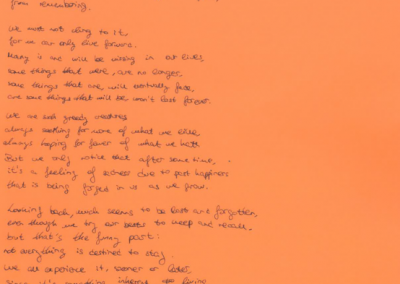 from remembering.
we must not cling to it
for we can only live forward.
Many is one will be wrong in our lives,
some things that were, are no longer
some things that are, will eventually fade,
and some things that will be won't last forever.
We are such greedy creatures
always seeking for more of what we else
always hoping for fewer of what we hath
But we only notice that after some time,
it's a feeling of sadness due to past happiness
that is being forged in us as we grow.
Looking back, much seems to be lost and forgotten,
even though we try our bests to keep and recall.
but that's the funny part:
not everything is destined to stay.
We all experience it, sooner or later,